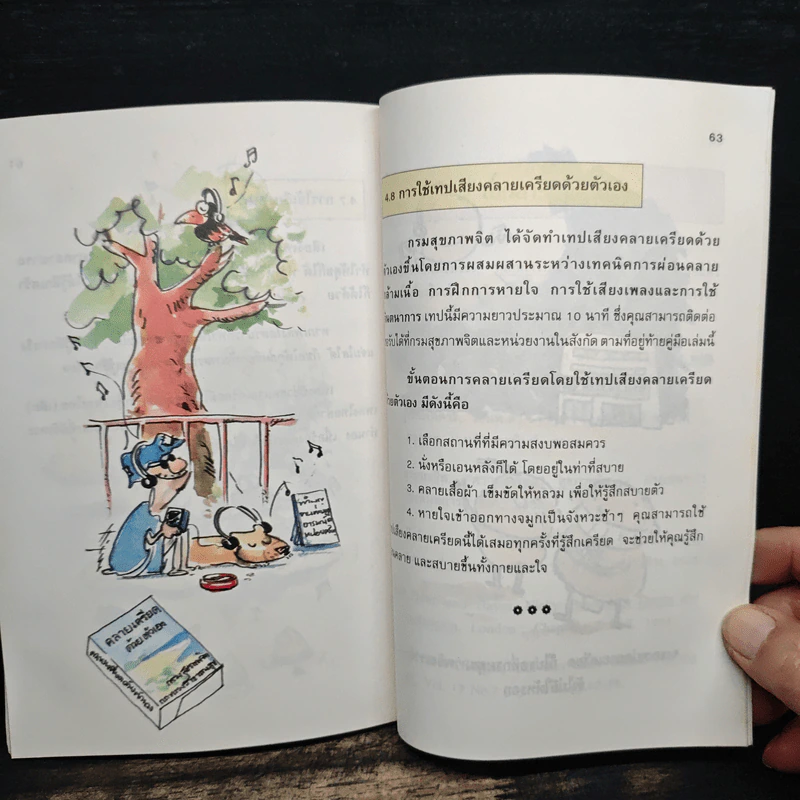 คลายเครียด
ด้วยตัวเอง
63
4.8 การใช้เทปเสียงคลายเครียดด้วยตัวเอง
กรมสุขภาพจิต ได้จัดทำเทปเสียงคลายเครียดด้วย
ตัวเองขึ้นโดยการผสมผสานระหว่างเทคนิคการผ่อนคลาย
ล้ามเนื้อ การฝึกการหายใจ การใช้เสียงเพลงและการใช้
นตนาการ เทปนี้มีความยาวประมาณ 10 นาที ซึ่งคุณสามารถติดต่อ
รับได้ที่กรมสุขภาพจิตและหน่วยงานในสังกัด ตามที่อยู่ท้ายคู่มือเล่มนี้
ขั้นตอนการคลายเครียดโดยใช้เทปเสียงคลายเครียด
ด้วยตัวเอง มีดังนี้คือ
1. เลือกสถานที่ที่มีความสงบพอสมควร
2. นั่งหรือเอนหลังก็ได้ โดยอยู่ในท่าที่สบาย
3. คลายเสื้อผ้า เข็มขัดให้หลวม เพื่อให้รู้สึกสบายตัว
4. หายใจเข้าออกทางจมูกเป็นจังหวะช้าๆ คุณสามารถใช้
เสียงคลายเครียดนี้ได้เสมอทุกครั้งที่รู้สึกเครียด จะช่วยให้คุณรู้สึก
นคลาย และสบายขึ้นทั้งกายและใจ